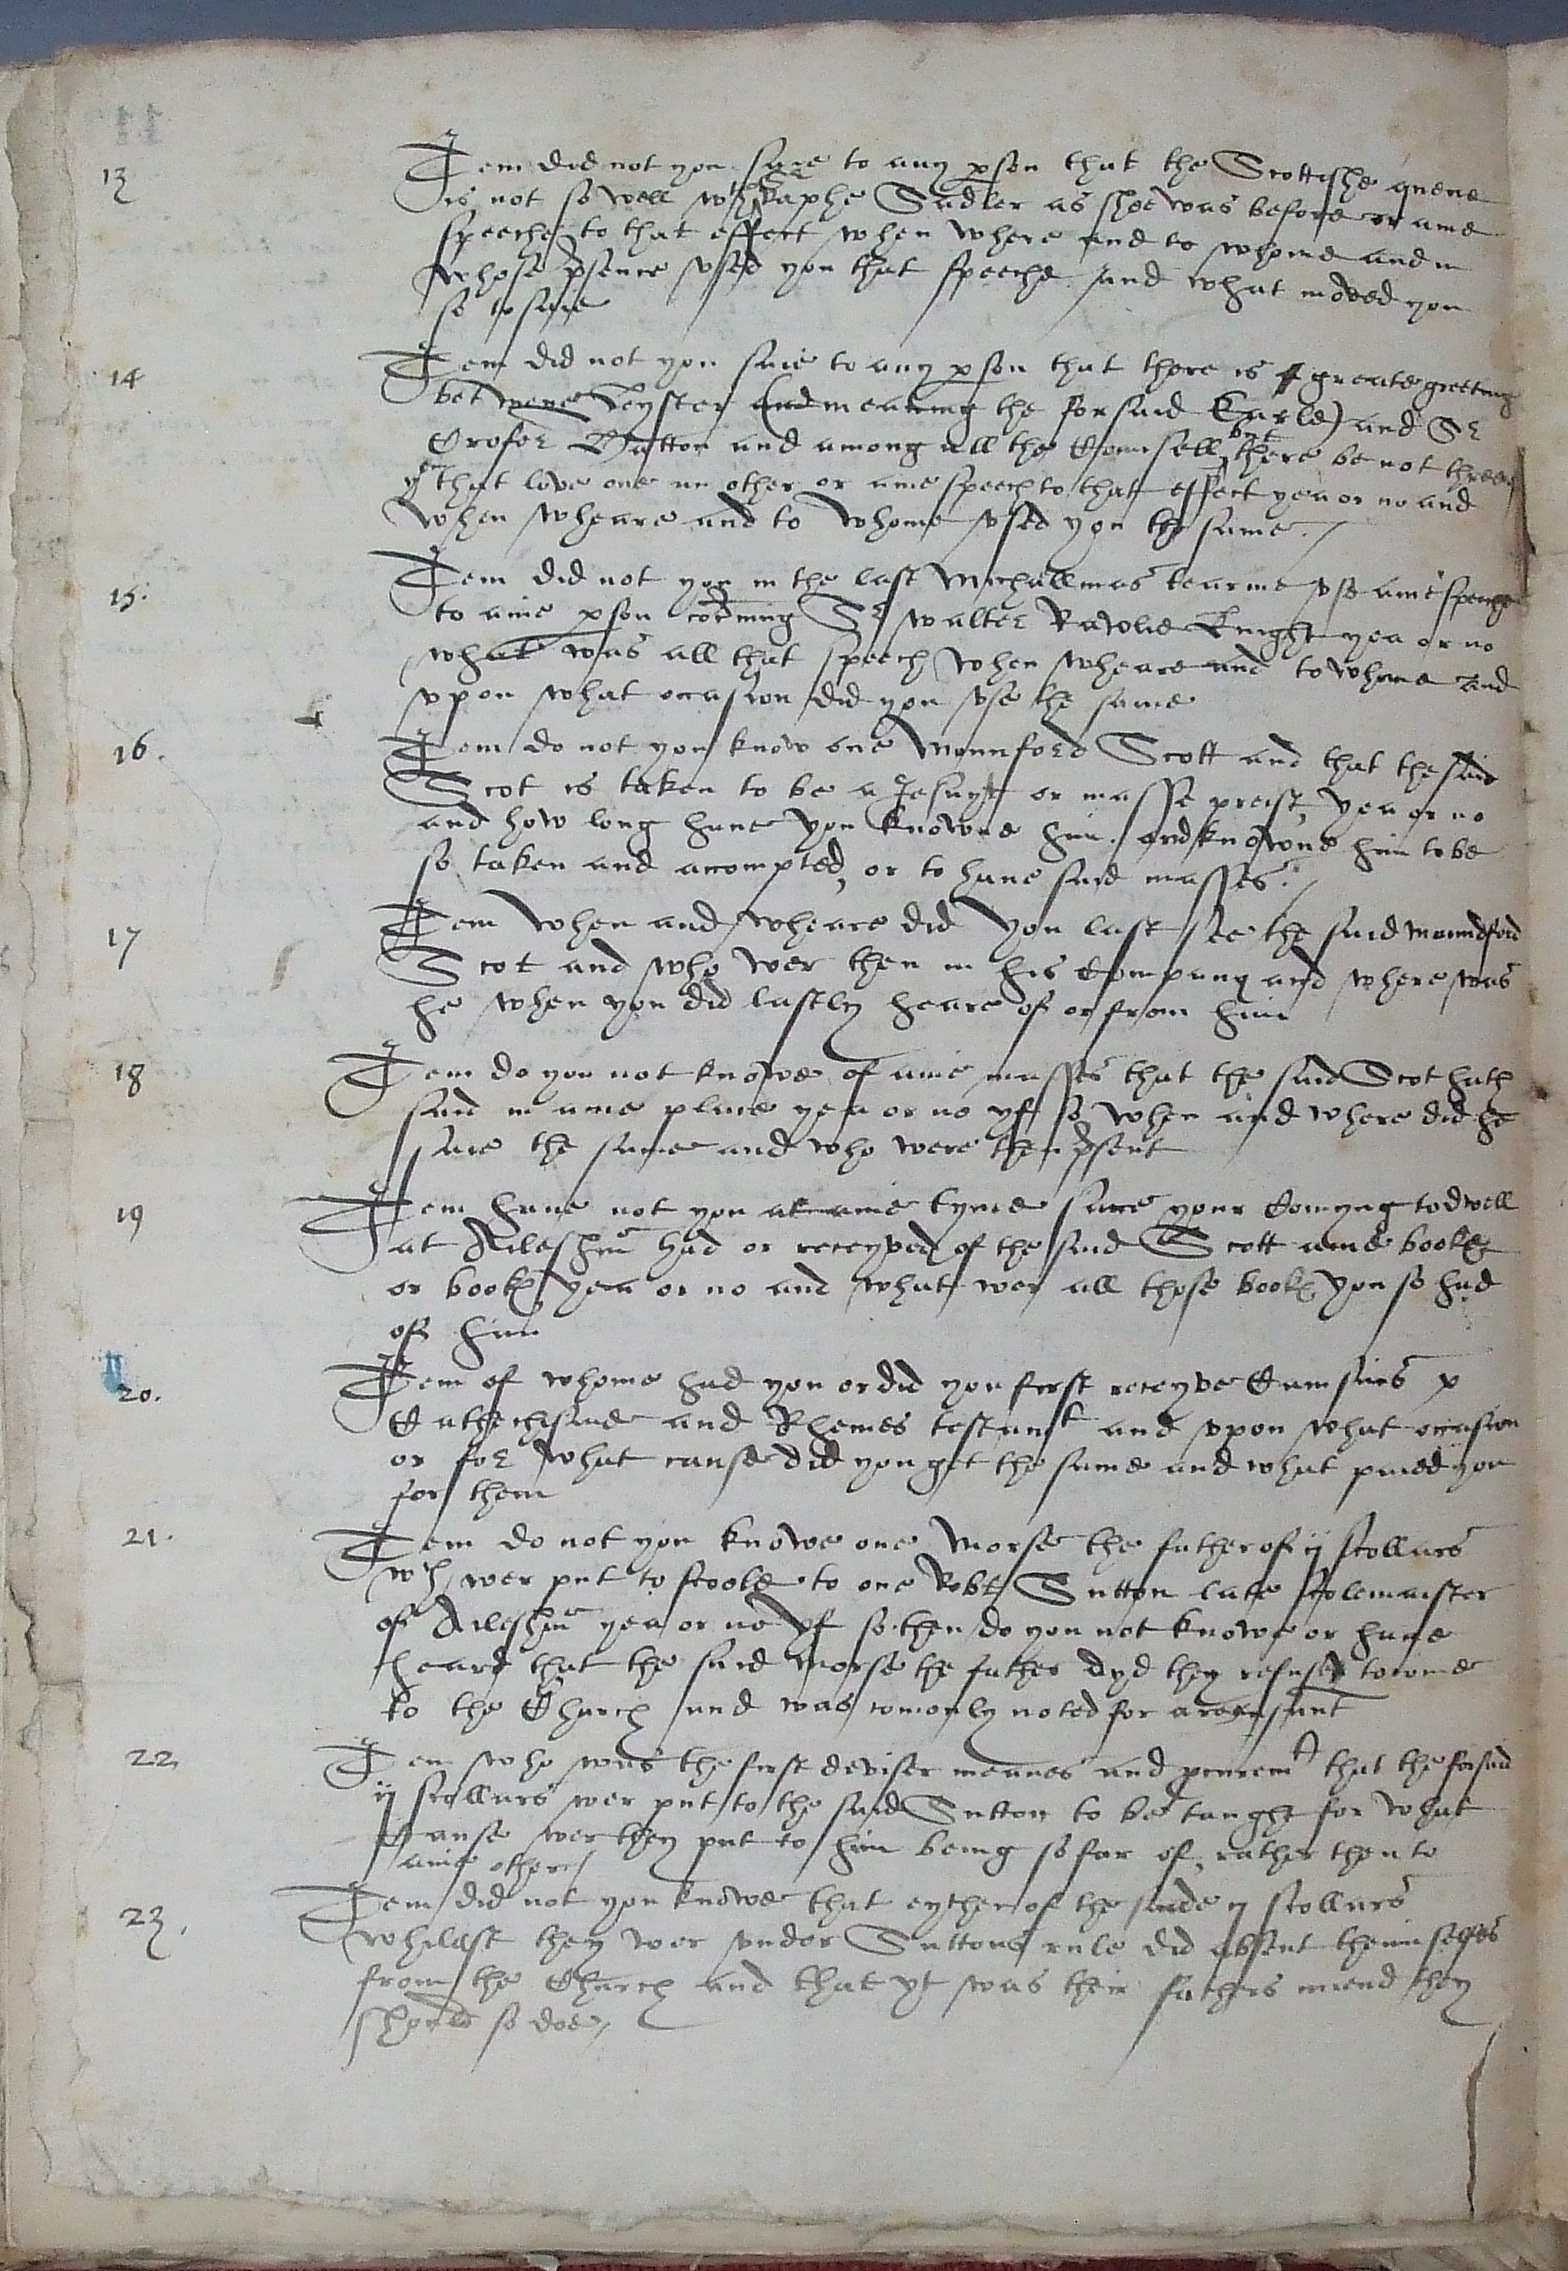 13 Item did not you saie to any pson that the Scottishe quene
is not so well wth Sr Raphe Sadler as shee was before or anie
speeche to that effect when where and to whome and in
whose psence vsed you that speeche and what moved you
so to saie
14 Item did not you saie to any pson that there is a greate greeting
betwene Leyster (and meaning the forsaid Earle) and Sr
Cristofer Hatton and among all the Counsell but there be not three
yt that love one an other or anie speech to that effect yea or no and
when wheare and to whome vsed you the same
15. Item did not you in the last Michallmas tearme vse anie speache
to anie pson cocerning Sr walter Rawlie knight yea or no
what was all that speech when wheare and to whome and
vpon what occasion did you vse the same
16. Item do not you know one Mounford Scott and that the said
Scot is taken to be a Jesuyte or masse preist, yea or no
and how long haue you knowne him. and knowne him to be
so taken and accompted, or to haue said masses.
17 Item when and wheare did you last see the said Mounndford
Scot and who wer then in his Company and where was
he when you did lastly heare of or from him
18 Item do you not knowe of anie masses that the said Scot hath
said in anie place yea or no yf so when and where did he
saie the same and who were then psent
19 Item haue not you at anie tyme since your Comyng to dwell
at Aileshm had or receyved of the said Scott anie booke
or bookes yea or no and what wer all those bookes you so had
of him
20. Item of whome had you or did you first receyve Camsius
Cathechisme and Rhemes testamt and vpon what occasion
or for what cause did you get the same and what paied you
for them
21. Item do not you knowe one Morse the father of ij scollars
wch wer put to scoole to one Robt Sutton late scolemaister
of Aileshm yea or no yf so then do you not knowe or haue
heard that the said Morse the father dyd then refuse to come
to the Church and was comonly noted for a recusant
22 Item who was the first deviser meanes and procuremt that the forsaid
ij scollars wer put to the said Sutton to be taught for what
Cause wer they put to him being so far of, rather then to
anie other
23. Item did not you knowe that eyther of the saide ij scollars
whilest they wer vnder Suttons rule did absent themselves
from the Church and that yt was their fathers miend they
should so doe